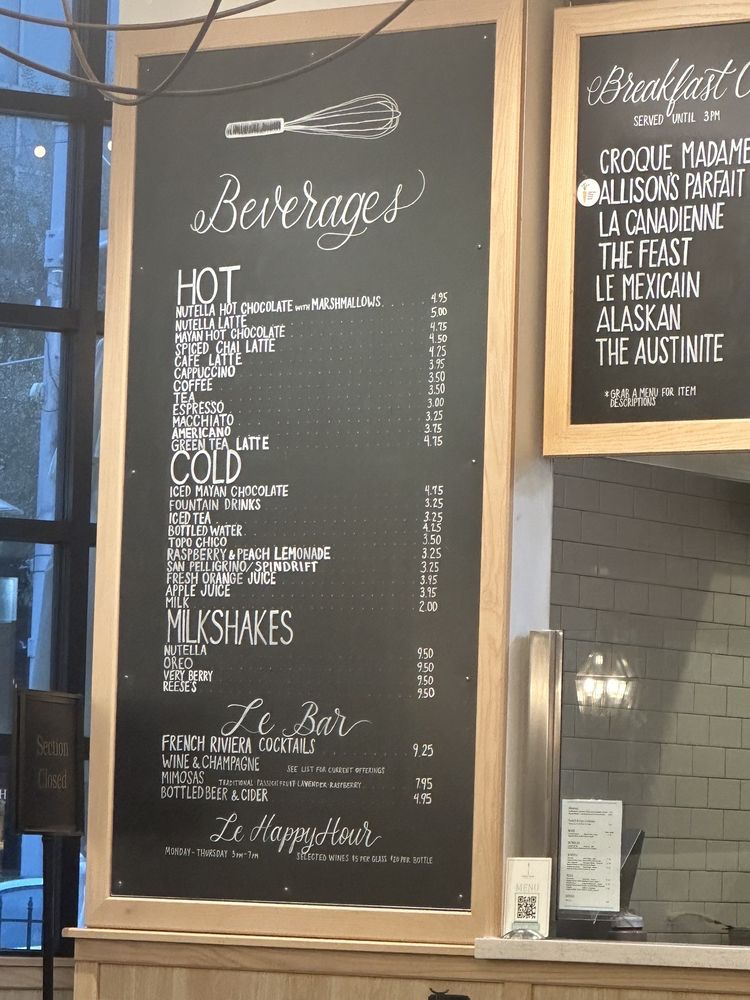 Beverages
HOT
NUTELLA HOT CHOCOLATE WITH MARSHMALLOWS 4.95
NUTELLA LATTE 5.00
MAYAN HOT CHOCOLATE 4.75
SPICED CHAI LATTE 4.50
CAFE LATTE 4.25
CAPPUCCINO 3.95
COFFEE 3.50
TEA 3.50
ESPRESSO 3.00
MACCHIATO 3.25
AMERICANO 3.75
GREEN TEA LATTE 4.75
COLD
ICED MAYAN CHOCOLATE 4.75
FOUNTAIN DRINKS 3.25
ICED TEA 3.25
BOTTLED WATER 4.25
TOPO CHICO 3.50
RASPBERRY & PEACH LEMONADE 3.25
SAN PELLEGRINO/SPINDRIFT 3.25
FRESH ORANGE JUICE 3.95
APPLE JUICE 3.95
MILK 2.00
MILKSHAKES
NUTELLA 9.50
OREO 9.50
VERY BERRY 9.50
REESE'S 9.50
Le Bar
FRENCH RIVIERA COCKTAILS 9.25
WINE & CHAMPAGNE SEE LIST FOR CURRENT OFFERINGS
MIMOSAS TRADITIONAL·PASSION FRUIT·LAVENDER·RASPBERRY 7.95
BOTTLED BEER & CIDER 4.95
Le Happy Hour
MONDAY-THURSDAY 3PM-7PM SELECTED WINES $5 PER GLASS $20 PER BOTTLE
Breakfast
SERVED UNTIL 3PM
CROQUE MADAME
ALLISON'S PARFAIT
LA CANADIENNE
THE FEAST
LE MEXICAIN
ALASKAN
THE AUSTINITE
*GRAB A MENU FOR ITEM
DESCRIPTIONS
Section
Closed
MENU